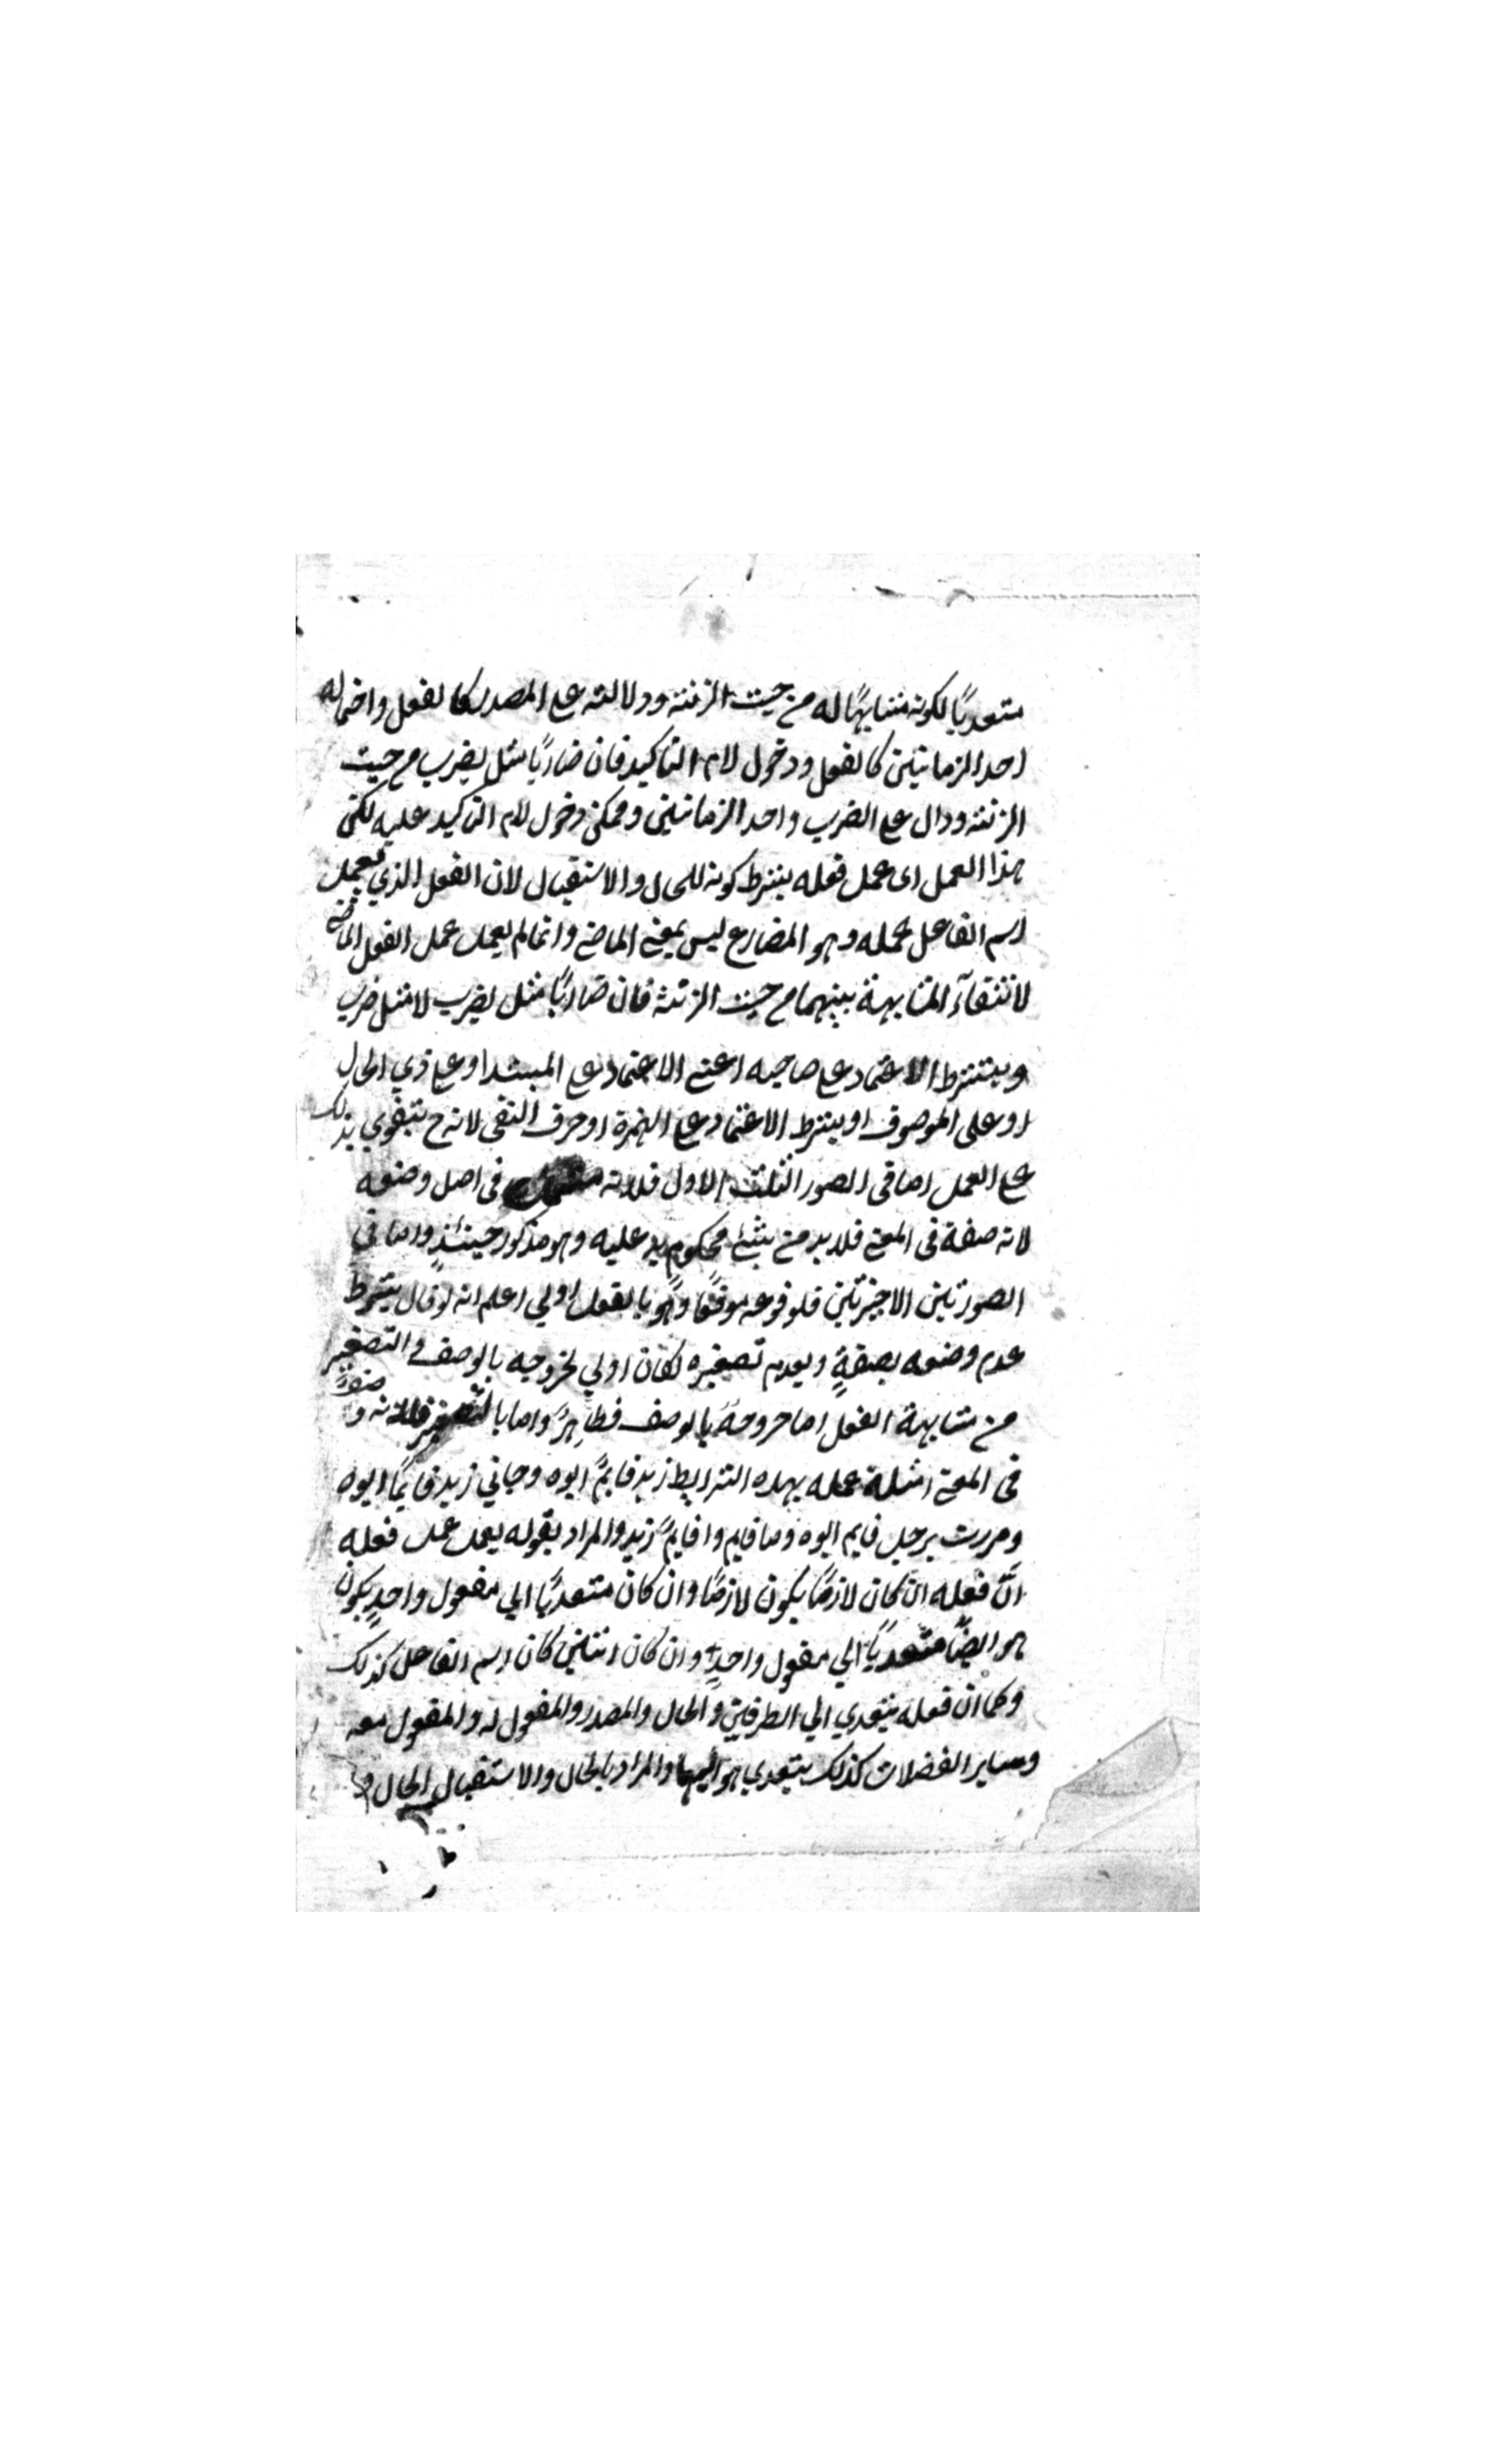 متعديًا لكونه مشابهًا له من حيث الزنة ودلالته على المصدر كالفعل واحتماله
احد الزمانين كالفعل ودخول لام التاكيد فان ضاربًا مثل يضرب من حيث
الزنة ودال على الضرب واحد الزمانين وممكن دخول لام التاكيد عليه لكن
هذا العمل اى عمل فعله يشترط كونه للحال والاستقبال لان الفعل الذي يعمل
اسم الفاعل عمله وهو المضارع ليس بمعنى الماضي وانما لم يعمل عمل الفعل الماضي
لانتفآء المشابهة بينهما من حيث الزنة فان ضاربًا مثل يضرب لا مثل ضرب
ويشترط الاعتماد على صاحبه اعني الاعتماد على المبتدا او على ذي الحال
او على الموصوف او يشترط الاعتماد على الهمزة او حرف النفى لانه ح يتقوي بذلك
على العمل اما فى الصور الثلث الاول فلانه فى اصل وضعه
لانه صفة فى المعنى فلا بد من شئ محكوم به عليه وهو مذكور حينئذٍ واما فى
الصورتين الاخيرتين فلوقوعه موقعًا هو بالفعل اولي اعلم انه لو قال يشترط
عدم وصفه بصفةٍ وبعدم تصغيره لكان اولي لخروجه بالوصف والتصغير
من مشابهة الفعل اما خروجه بالوصف فظاهرٌ واما بالتصغير فلانه وصفٌ
فى المعنى امثلة عمله بهده الشرايط زيد قايمٌ ابوه وجاني زيد قايمًا ابوه
ومررت برجل قايم ابوه وما قايم واقايمٌ زيد والمراد بقوله يعمل عمل فعله
انّ فعله ان كان لازمًا يكون لازمًا وان كان متعديًا الي مفعول واحدٍ يكون
هو ايضًا متعديًا الي مفعول واحدٍ وان كان اثنين كان اسم الفاعل كذلك
وكما ان فعله يتعدي الي الظرفين والحال والمصدر والمفعول له والمفعول معه
وساير الفضلات كذلك يتعدي هو اليها والمراد بالحال والاستقبال الحال